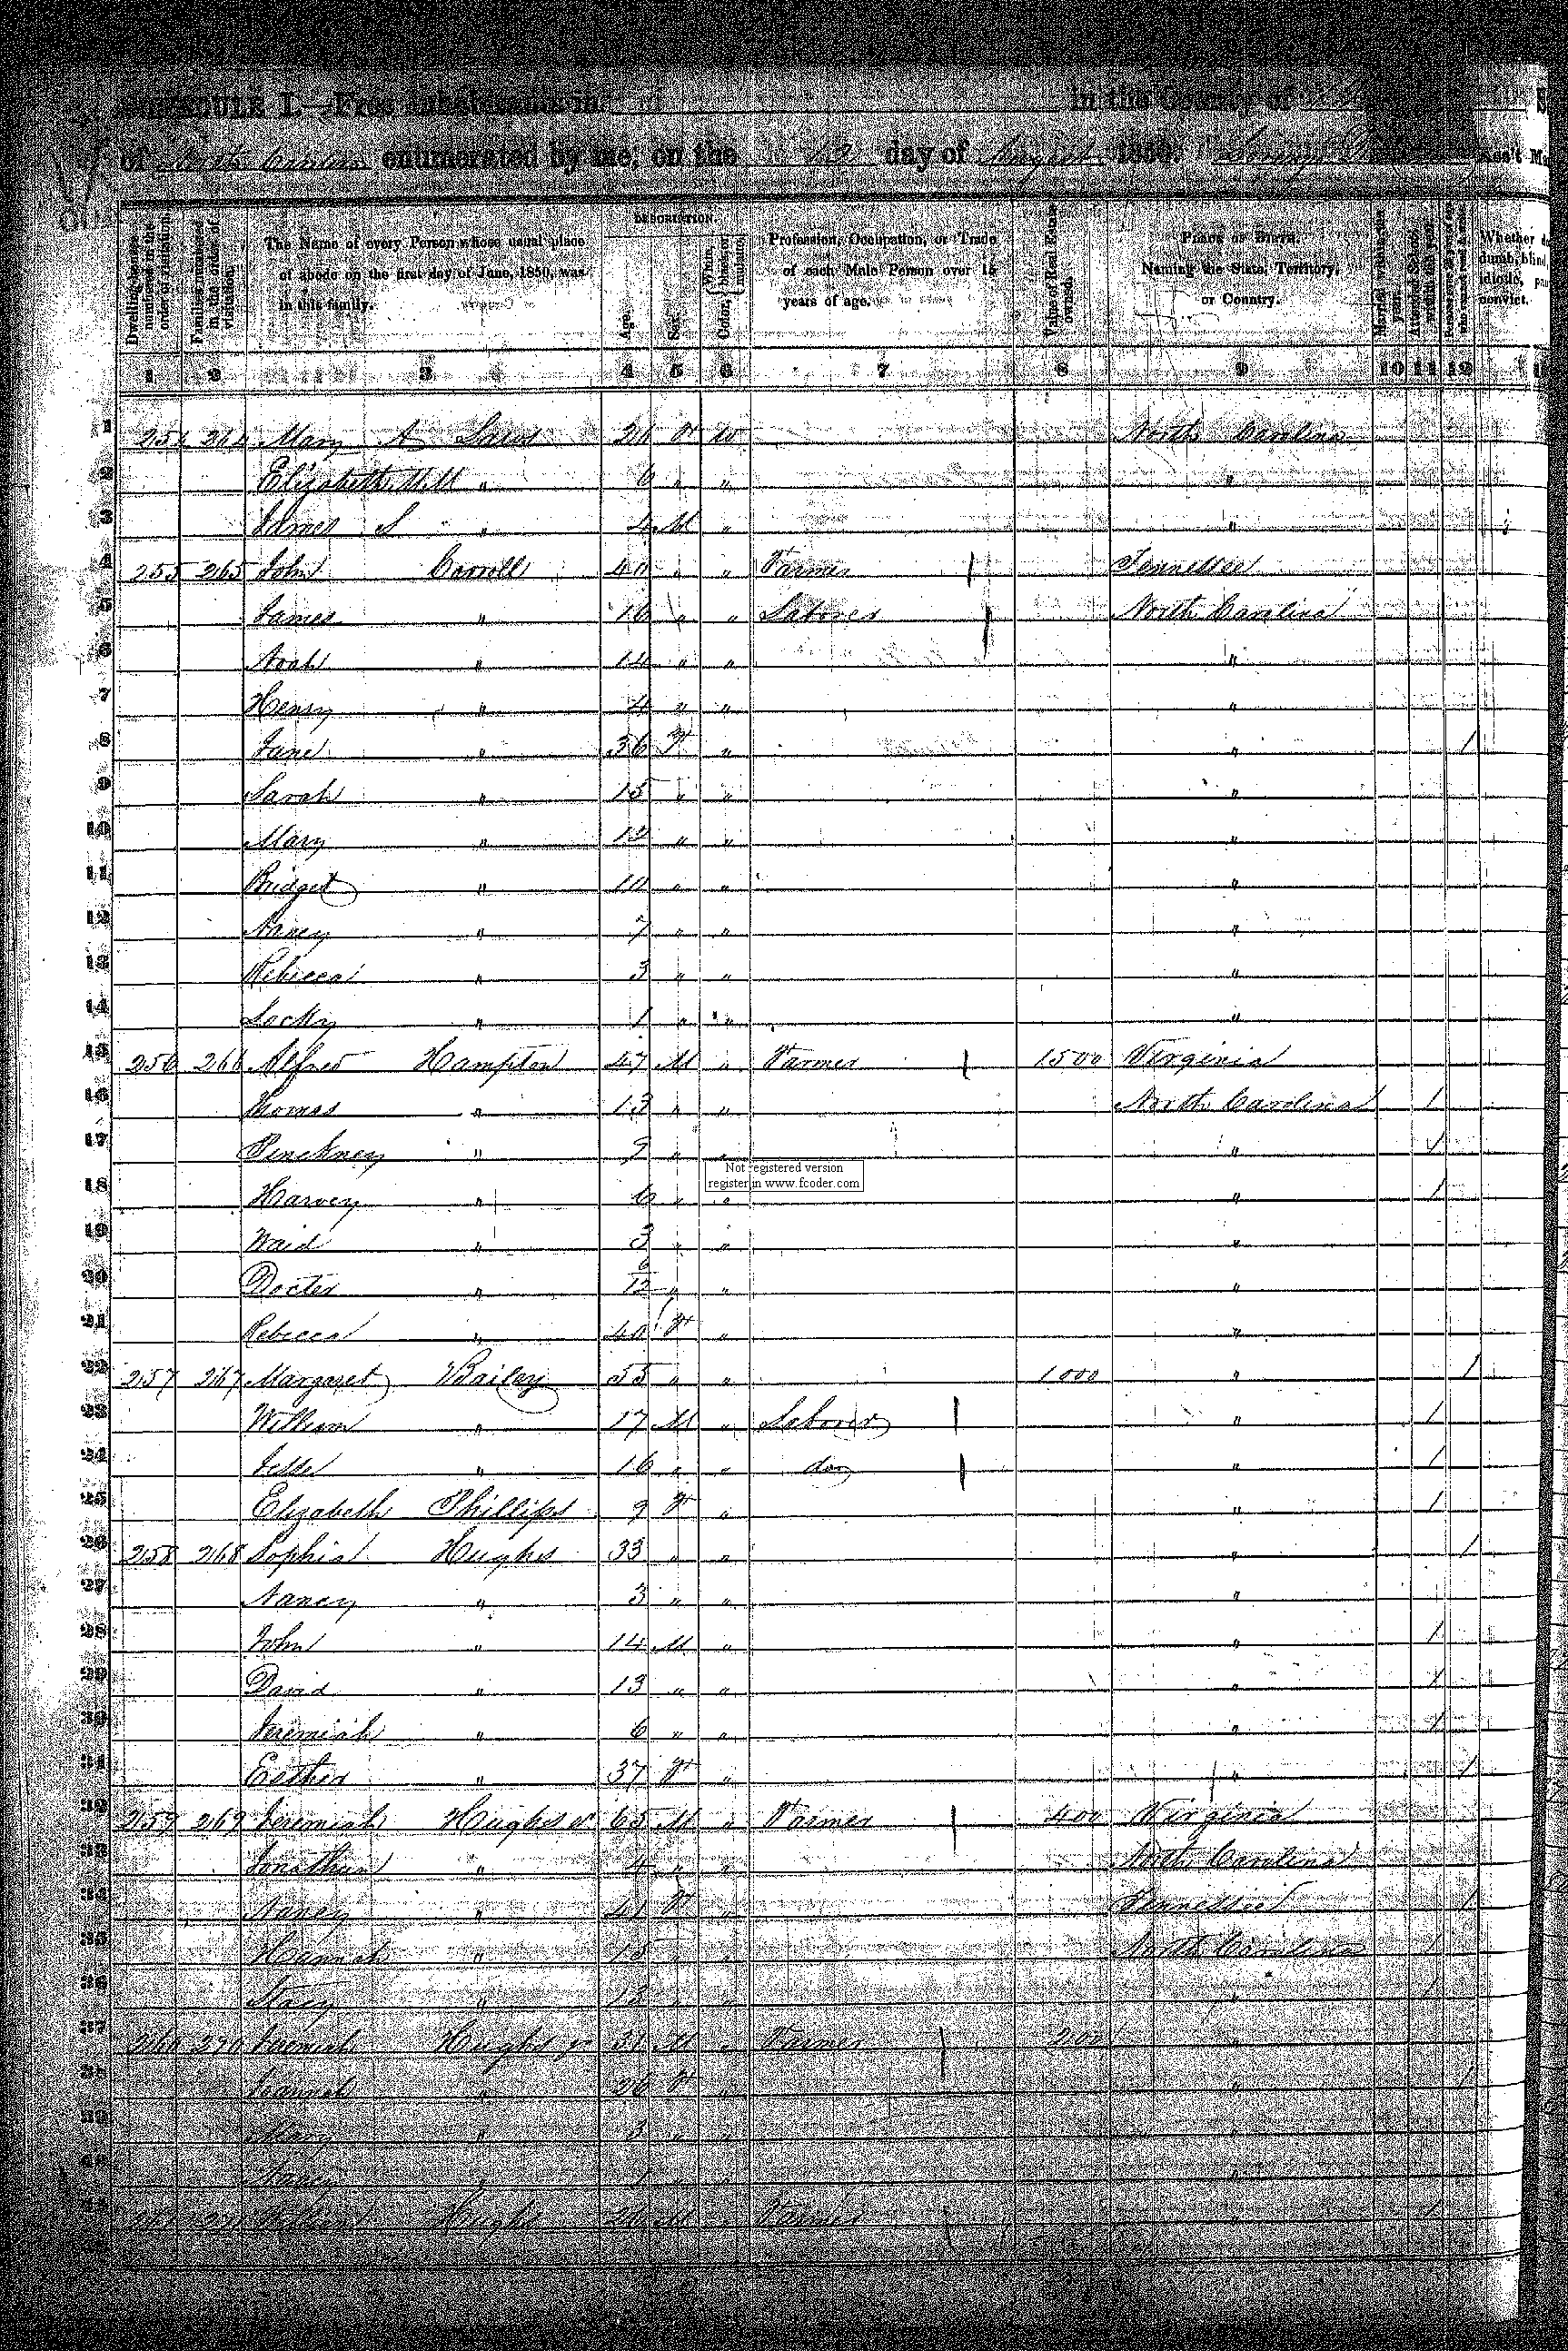 SCHEDULE I.—Free Inhabitants in in the County of
of North Carolina enumerated by me, on the 12 day of August 1850. Ass't
DESCRIPTION.
Dwelling-houses numbered in the order of visitation.
Families numbered in the order of visitation.
The Name of every Person whose usual place of abode on the first day of June, 1850, was in this family.
Age.
Sex.
Color, White, black, or mulatto.
Profession, Occupation, or Trade of each Male Person over 15 years of age.
Value of Real Estate owned.
Place of Birth. Naming the State, Territory, or Country.
Married within the year.
Attended School within the year.
Persons over 20 years of age who cannot read & write.
Whether dumb, blind, idiotic, convict.
1 2 3 4 5 6 7 8 9 10 11 12
1 254 264 Mary A 21 F W North Carolina
2 Elizabeth " 6 " " "
3 James S " 4 M " "
4 255 265 John Carroll 40 " " Farmer Tennessee
5 James " 16 " " Laborer North Carolina
6 Noah " 14 " " "
7 Henry " 4 " " "
8 Jane " 36 F " " 1
9 Sarah " 15 " " "
10 Mary " 12 " " "
11 Bridget " 10 " " "
12 Nancy " 7 " " "
13 Rebecca " 3 " " "
14 Locky " 1 " " "
15 256 266 Alfred Hampton 47 M " Farmer 1500 Virginia
16 Thomas " 13 " " North Carolina 1
17 Pinckney " 9 " " " 1
18 Harvey " 6 " " " 1
Not registered version
register in www.fcoder.com
19 Waid " 3 " " "
20 Docter " 6/12 " " "
21 Rebecca " 40 F " "
22 257 267 Margaret Bailey 55 " " 1000 " 1
23 William " 17 M " Laborer " 1
24 Jesse " 16 " " do " 1
25 Elizabeth Phillips 9 F " " 1
26 258 268 Sophia Hughes 33 " " " 1
27 Nancy " 3 " " "
28 John " 14 M " " 1
29 David " 13 " " " 1
30 Jeremiah " 6 " " " 1
31 Esther " 37 F " " 1
32 259 269 Jeremiah Hughes sr 65 M " Farmer 400 Virginia
33 Jonathan " 4 " " North Carolina
34 Nancy " 41 F " Tennessee 1
35 Hannah " 15 " " North Carolina 1
36 Stacy " 13 " " " 1
37 260 270 Jeremiah Hughes jr 31 M " Farmer 200 "
38 " 26 F " " 1
39 Mary " 3 " " "
40 Nancy " 1 " " "
Hughes 26 M " Farmer " 1